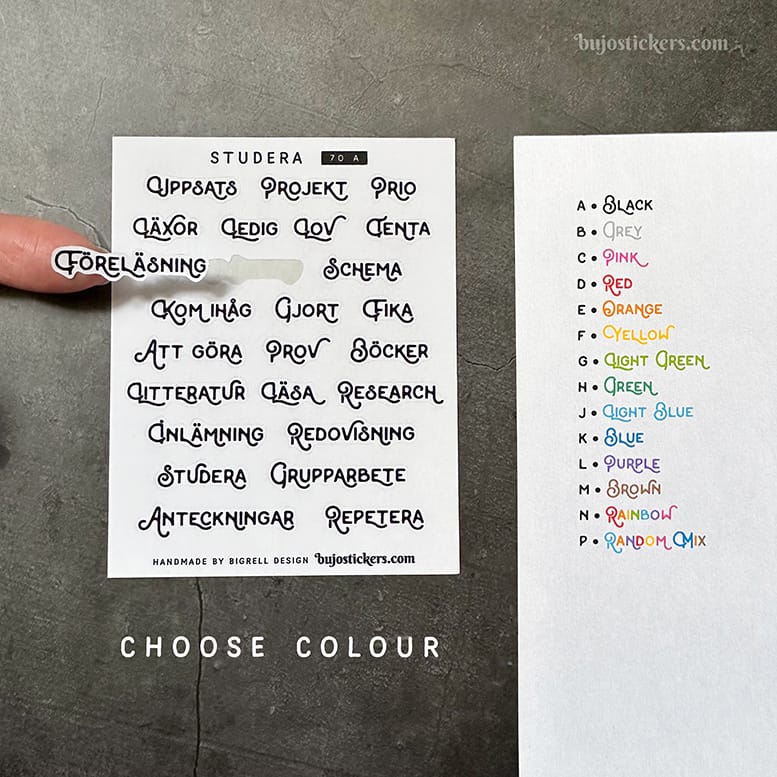 bujostickers.com
STUDERA 70 A
UPPSATS PROJEKT PRIO
LÄXOR LEDIG LOV TENTA
FÖRELÄSNING SCHEMA
KOM IHÅG GJORT FIKA
ATT GÖRA PROV BÖCKER
LITTERATUR LÄSA RESEARCH
INLÄMNING REDOVISNING
STUDERA GRUPPARBETE
ANTECKNINGAR REPETERA
HANDMADE BY BIGRELL DESIGN bujostickers.com
CHOOSE COLOUR
A • BLACK
B • GREY
C • PINK
D • RED
E • ORANGE
F • YELLOW
G • LIGHT GREEN
H • GREEN
J • LIGHT BLUE
K • BLUE
L • PURPLE
M • BROWN
N • RAINBOW
P • RANDOM MIX